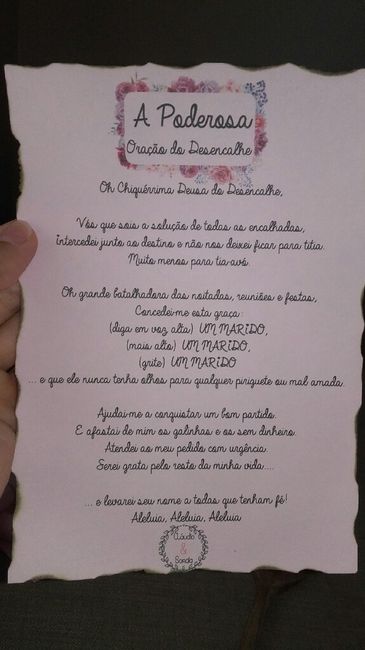 A Poderosa
Oração do Desencalhe
Oh Chiquérrima Deusa do Desencalhe,
Vós que sois a solução de todas as encalhadas,
Intercedei junto ao destino e não nos deixei ficar para titia.
Muito menos para tia-avó.
Oh grande batalhadora das noitadas, reuniões e festas,
Concedei-me esta graça:
(diga em voz alta) UM MARIDO,
(mais alto) UM MARIDO,
(grite) UM MARIDO
... e que ele nunca tenha olhos para qualquer piriguete ou mal amada.
Ajudai-me a conquistar um bom partido.
E afastai de mim os galinhas e os sem dinheiro.
Atendei ao meu pedido com urgência.
Serei grata pelo resto da minha vida....
... e levarei seu nome a todas que tenham fé!
Aleluia, Aleluia, Aleluia
&